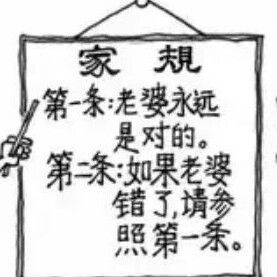 家 規
第一条:老婆永远
是对的。
第二条:如果老婆
错了,请参
照第一条。